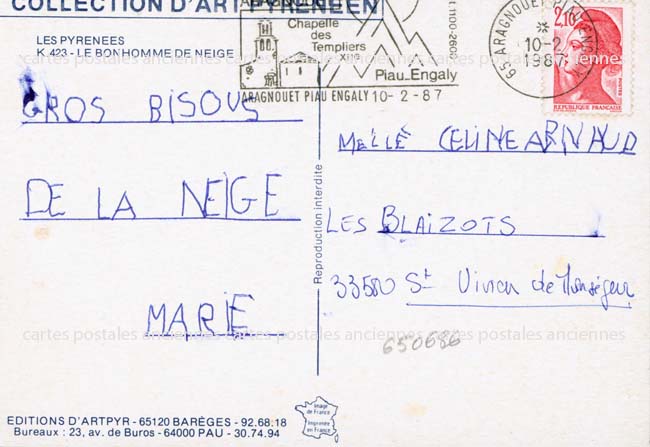 COLLECTION D'ART PYRENEEN
LES PYRENEES
K 423 - LE BONHOMME DE NEIGE
ARAGNOUET
Chapelle
des
Templiers
XIIe
1100-260
Piau_Engaly
ARAGNOUET PIAU ENGALY 10-2-87
65 ARAGNOUET PIAU ENGALY
10-2
1987
2,10
POSTES
REPUBLIQUE FRANÇAISE
GROS BISOUS
DE LA NEIGE
MARIE
Reproduction interdite
MELLE CELINE ARNAUD
LES BLAIZOTS
33580 St Vivien de Monségur
650686
cartes postales anciennes cartes postales anciennes
cartes postales anciennes cartes postales anciennes
Image
de France
Imprimée
en France
EDITIONS D'ARTPYR - 65120 BARÈGES - 92.68.18
Bureaux : 23, av. de Buros - 64000 PAU - 30.74.94